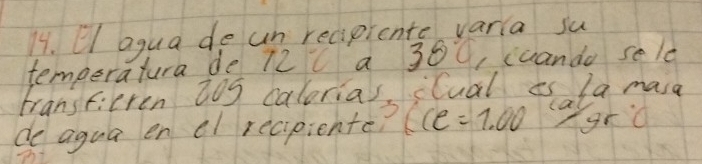 14. El agua de un recipiente varia su
temperatura de 12°C a 38°C, cuando se le
transfieren 205 calorias, ¿Cual es la masa
de agua en el recipiente? (Ce = 1.00 cal/gr°C